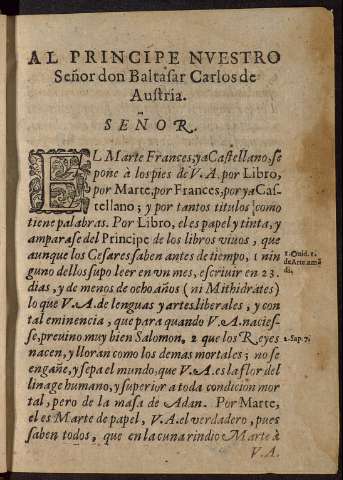 AL PRINCIPE NVESTRO
Señor don Baltasar Carlos de
Austria.
SEÑOR.
EL Marte Frances, ya Castellano, se
pone à los pies de V.A. por Libro,
por Marte, por Frances, por ya Cas-
tellano; y por tantos titulos como
tiene palabras. Por Libro, el es papel y tinta, y
amparase del Principe de los libros viuos, que
aunque los Cesares saben antes de tiempo, 1 nin
guno dellos supo leer en vn mes, escriuir en 23.
dias, y de menos de ocho años (ni Mithidrates)
lo que V.A. de lenguas y artes liberales, y con
tal eminencia, que para quando V.A. nacies-
se, preuino muy bien Salomon, 2 que los Reyes
nacen, y lloran como los demas mortales; no se
engañe, y sepa el mundo, que V.A. es la flor del
linage humano, y superior a toda condicion mor
tal, pero de la masa de Adan. Por Marte,
el es Marte de papel, V.A. el verdadero, pues
saben todos, que en la cuna rindio Marte à
V.A.
1. Ouid. 1.
de Arte amã
di.
2. Sap. 7.